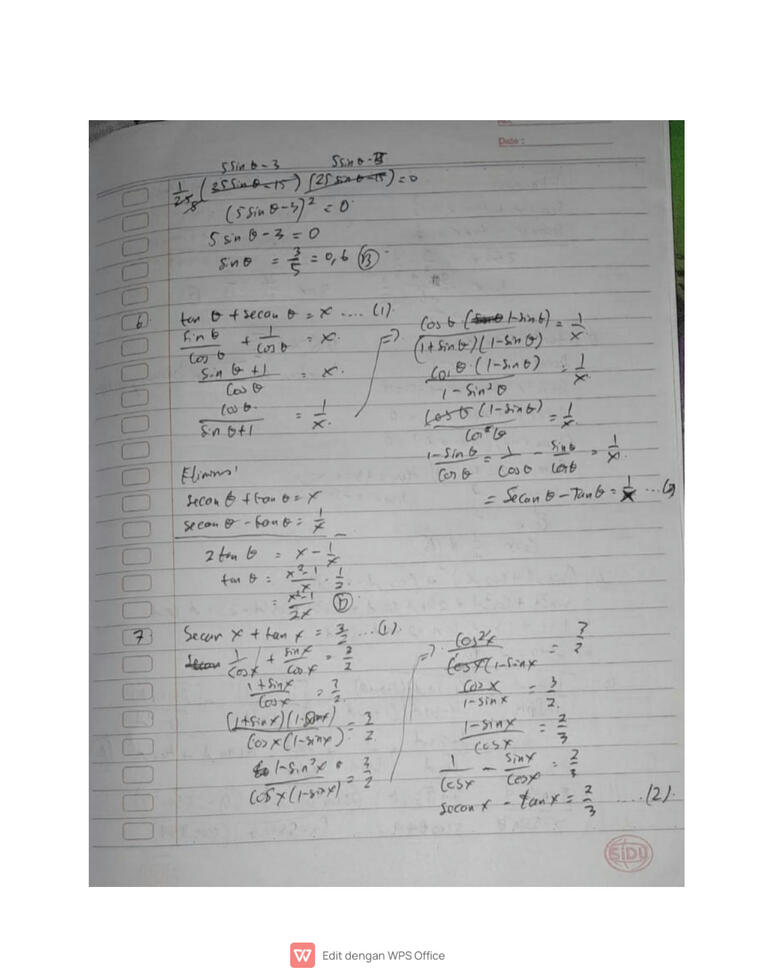 Date :
5 sin θ - 3 5 sin θ - 3
1/25 ( 25 sin θ - 15 ) ( 25 sin θ - 15 ) = 0
(5 sin θ - 3)² = 0
5 sin θ - 3 = 0
sin θ = 3/5 = 0,6 (B)
6. tan θ + secan θ = x .... (1).
sin θ/cos θ + 1/cos θ = x.
sin θ + 1/cos θ = x.
cos θ/sin θ + 1 = 1/x.
=> cos θ (1 - sin θ)/(1 + sin θ)(1 - sin θ) = 1/x
cos θ . (1 - sin θ)/1 - sin² θ = 1/x
cos θ (1 - sin θ)/cos² θ = 1/x.
1 - sin θ/cos θ = 1/cos θ - sin θ/cos θ = 1/x.
= secan θ - Tan θ = 1/x ... (2)
secan θ + tan θ = x
secan θ - tan θ = 1/x
2 tan θ = x - 1/x
tan θ = x² - 1/x . 1/2
= x² - 1/2x (D)
7 Secan x + tan x = 3/2 ... (1).
1/cos x + sin x/cos x = 3/2
1 + sin x/cos x = 3/2
(1 + sin x)(1 - sin x)/cos x (1 - sin x) = 3/2
1 - sin² x/cos x (1 - sin x) = 3/2
=> cos² x/cos x (1 - sin x = 3/2
cos x/1 - sin x = 3/2.
1 - sin x/cos x = 2/3
1/cos x - sin x/cos x = 2/3
secan x - tan x = 2/3 .... (2).
SIDU
Edit dengan WPS Office